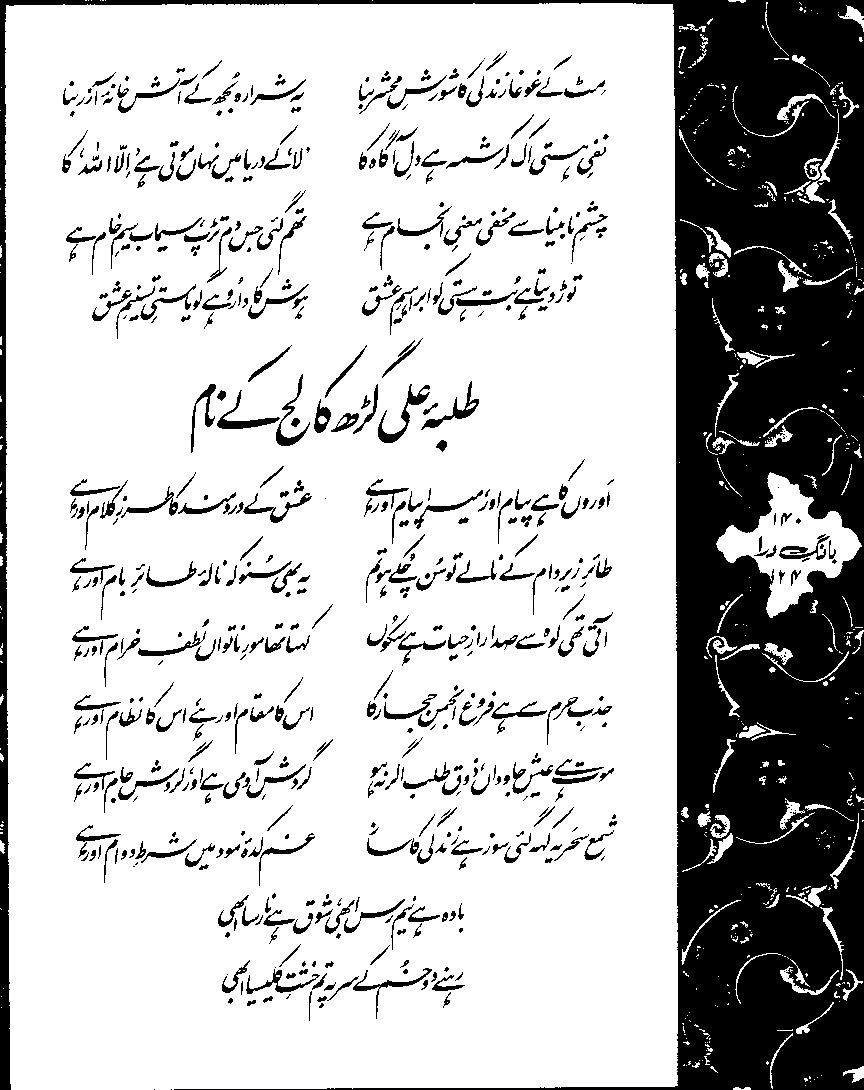 مٹ کے غوغا زندگی کا شورشِ محشر بنا یہ شرارہ بُجھ کے آتش خانۂ آزر بنا
نفیِ ہستی اک کرشمہ ہے دلِ آگاہ کا 'لا' کے دریا میں نہاں موتی ہے 'اِلّا اللہ' کا
چشمِ نابینا سے مخفی معنیِ انجام ہے تھم گئی جس دم تڑپ، سیماب سیمِ خام ہے
توڑ دیتا ہے بُتِ ہستی کو ابراہیمِ عشق ہوش کا دارُو ہے گویا مستیِ تسنیمِ عشق
طلبۂ علی گڑھ کالج کے نام
اَوروں کا ہے پیام اور، میرا پیام اور ہے عشق کے درد مند کا طرزِ کلام اور ہے
طائرِ زیرِ دام کے نالے تو سُن چُکے ہو تم یہ بھی سُنو کہ نالۂ طائرِ بام اور ہے
آتی تھی کوہ سے صدا رازِ حیات ہے سکُوں کہتا تھا مورِ ناتواں لُطفِ خرام اور ہے
جذبِ حرم سے ہے فروغ انجمنِ حجاز کا اس کا مقام اور ہے، اس کا نظام اور ہے
موت ہے عیشِ جاوداں، ذوقِ طلب اگر نہ ہو گردشِ آدمی ہے اور، گردشِ جام اور ہے
شمعِ سحَر یہ کہہ گئی سوز ہے زندگی کا ساز غم کدۂ نمود میں شرطِ دوام اور ہے
بادہ ہے نیم رس ابھی، شوق ہے نارسا ابھی
رہنے دو خُم کے سر پہ تم خشتِ کلیسیا ابھی
۱۴۰
بانگِ درا
۱۲۴